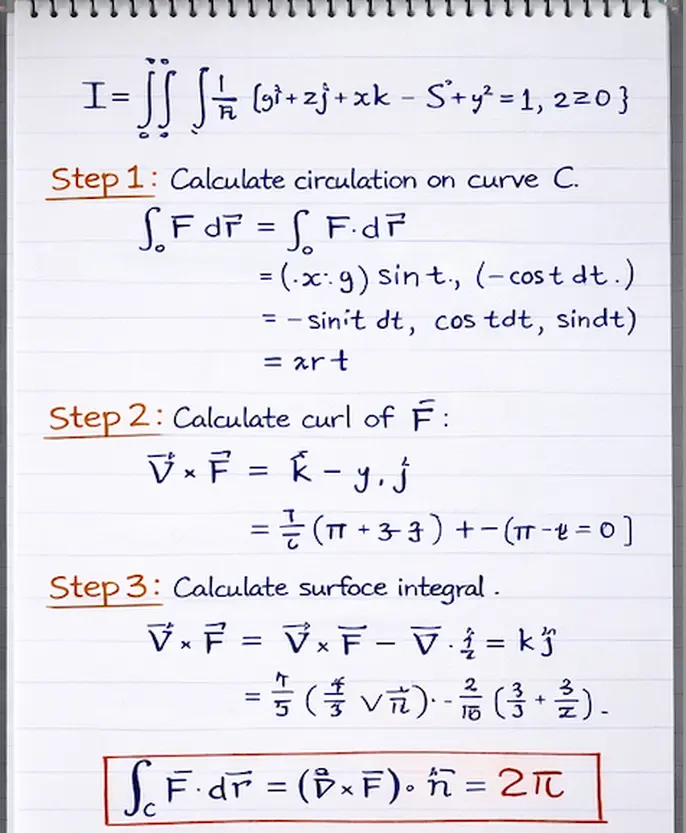 I = ∬ ∫ 1/n {yi + zj + xk − S° + y² = 1, 2≥0}
Step 1: Calculate circulation on curve C.
∫₀ F dr⃗ = ∫₀ F·dr⃗
= (·x·y) sin t., (−cos t dt.)
= −sin it dt, cos tdt, sindt)
= xr t
Step 2: Calculate curl of F̄:
V⃗ × F⃗ = k̂ − y, j
= (π + 3-3) + −(π − t = 0]
Step 3: Calculate surfoce integral.
V⃗ × F⃗ = V⃗ × F̄ − V̄ · = k j
= /5 ( /3 √n)·− 2/10 (3/3 + 3/z).
∫_C F̄·dr̄ = (D × F̄)∘ n̄ = 2π